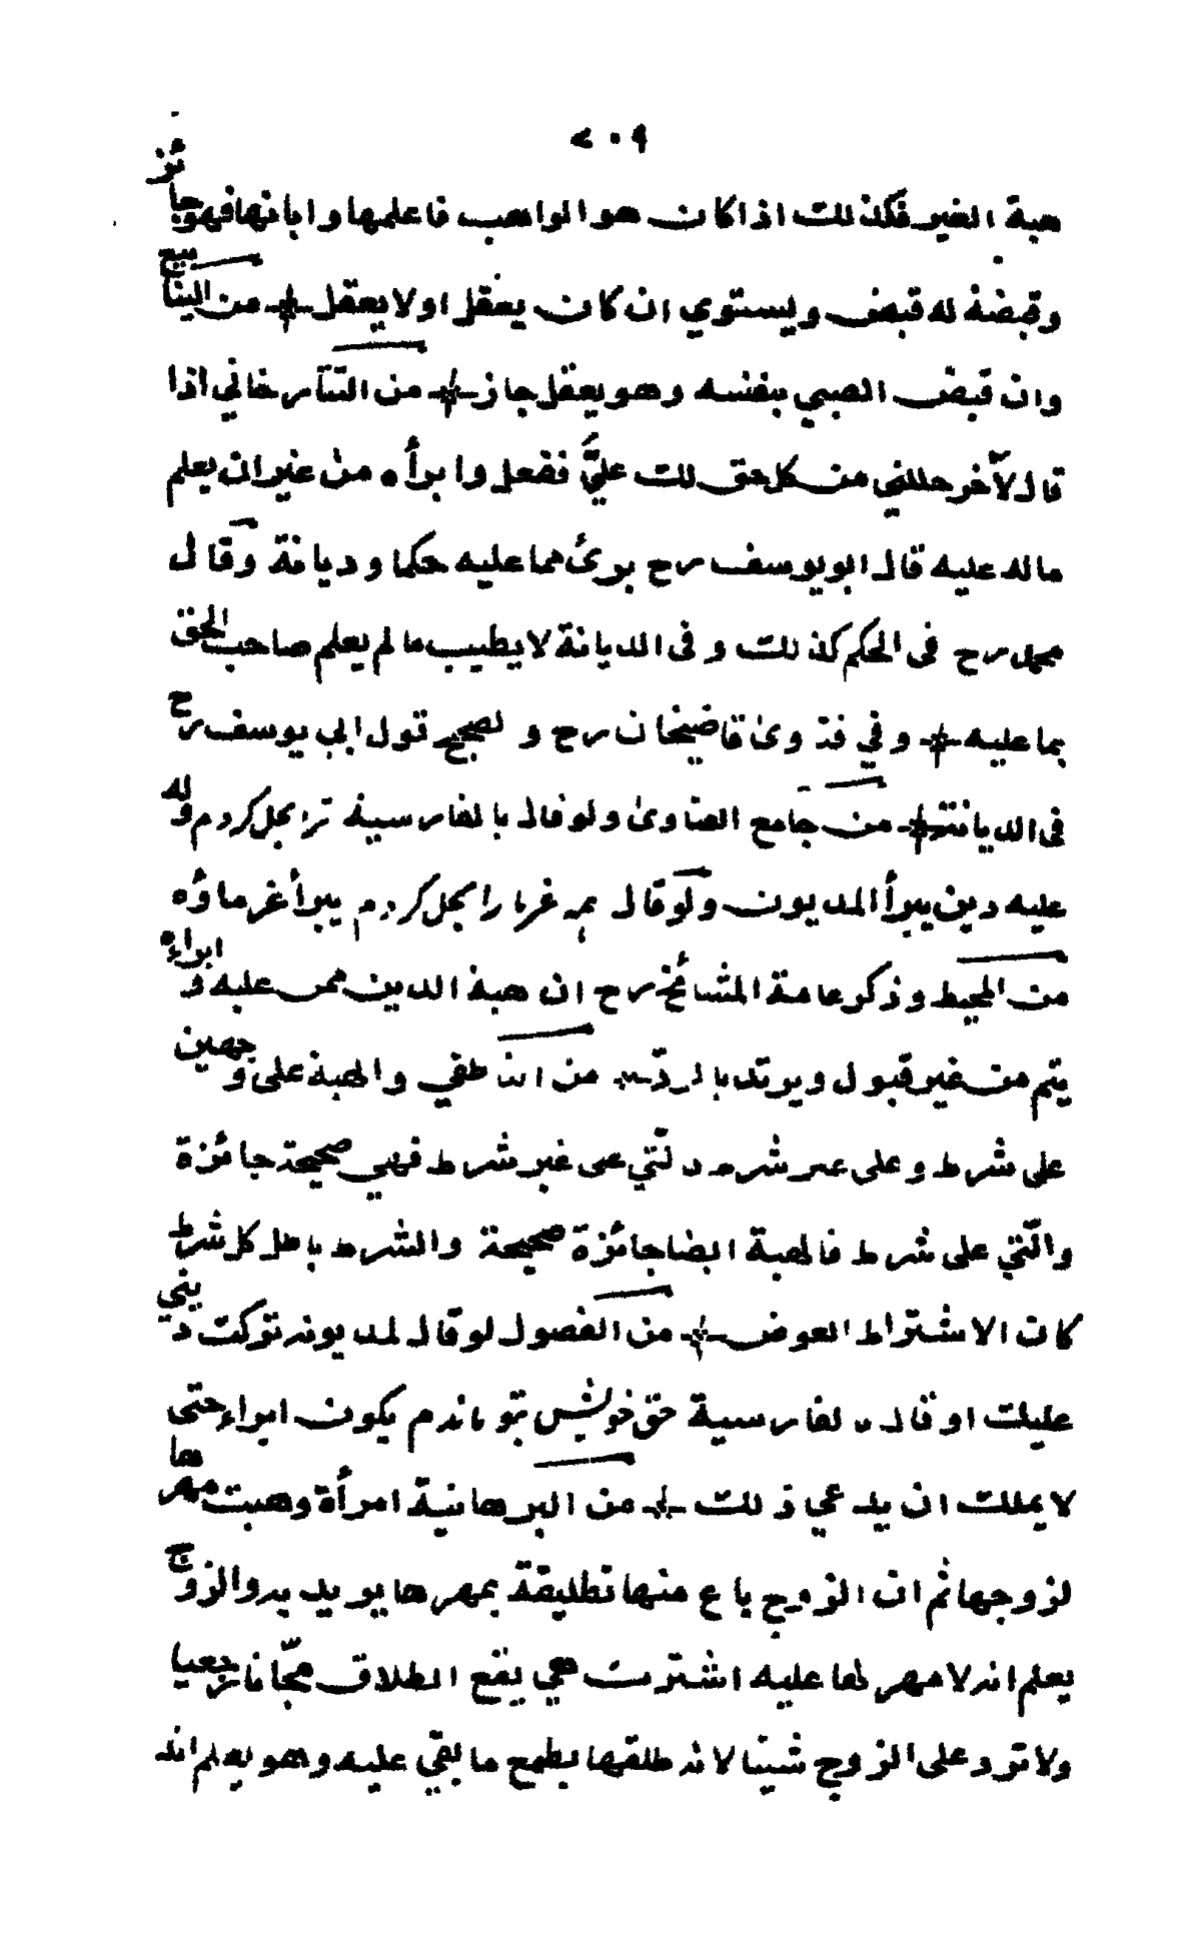 ٢٠٩
هبة الغير فكذلك اذا كان هو الواهب فاعلمها وابانها فهو جائز
وقبضه له قبض ويستوي ان كان يعقل او لا يعقل من الينابيع
وان قبض الصبي بنفسه وهو يعقل جاز من التتارخاني اذا
قال لآخر حللني من كل حق لك عليَّ ففعل وابرأه من غير ان يعلم
ماله عليه قال ابو يوسف رح برئ مما عليه حكما وديانة وقال
محمد رح فى الحكم كذلك وفى الديانة لا يطيب ما لم يعلم صاحب الحق
بما عليه وفي فتاوى قاضيخان رح والصحيح قول ابي يوسف رح
فى الديانة من جامع الفتاوى ولو قال بالفارسية ترا بحل كردم وله
عليه دين يبرأ المديون ولو قال همه غرما را بحل كردم يبرأ غرماؤه
من المحيط وذكر عامة المشائخ رح ان هبة الدين ممن عليه وابراءه
يتم من غير قبول ويرتد بالردّ من الناطفي والهبة على وجهين
على شرط وعلى غير شرط والتي على غير شرط فهي صحيحة جائزة
والّتي على شرط فالهبة ايضا جائزة صحيحة والشرط باطل كل شرط
كان الا اشتراط العوض من الفصول لو قال لمديونه تركت ديني
عليك او قال بالفارسية حق خويش بتو ماندم يكون ابراء حتى
لا يملك ان يدعي ذلك من البرهانية امرأة وهبت مهرها
لزوجها ثم ان الزوج باع منها تطليقة بمهرها يريد بدو الزوج
يعلم انه لا مهر لها عليه اشترت هي يقع الطلاق مجّانا رجعيا
ولا ترد على الزوج شيئا لانه طلقها بطمع ما بقي عليه وهو يعلم انه